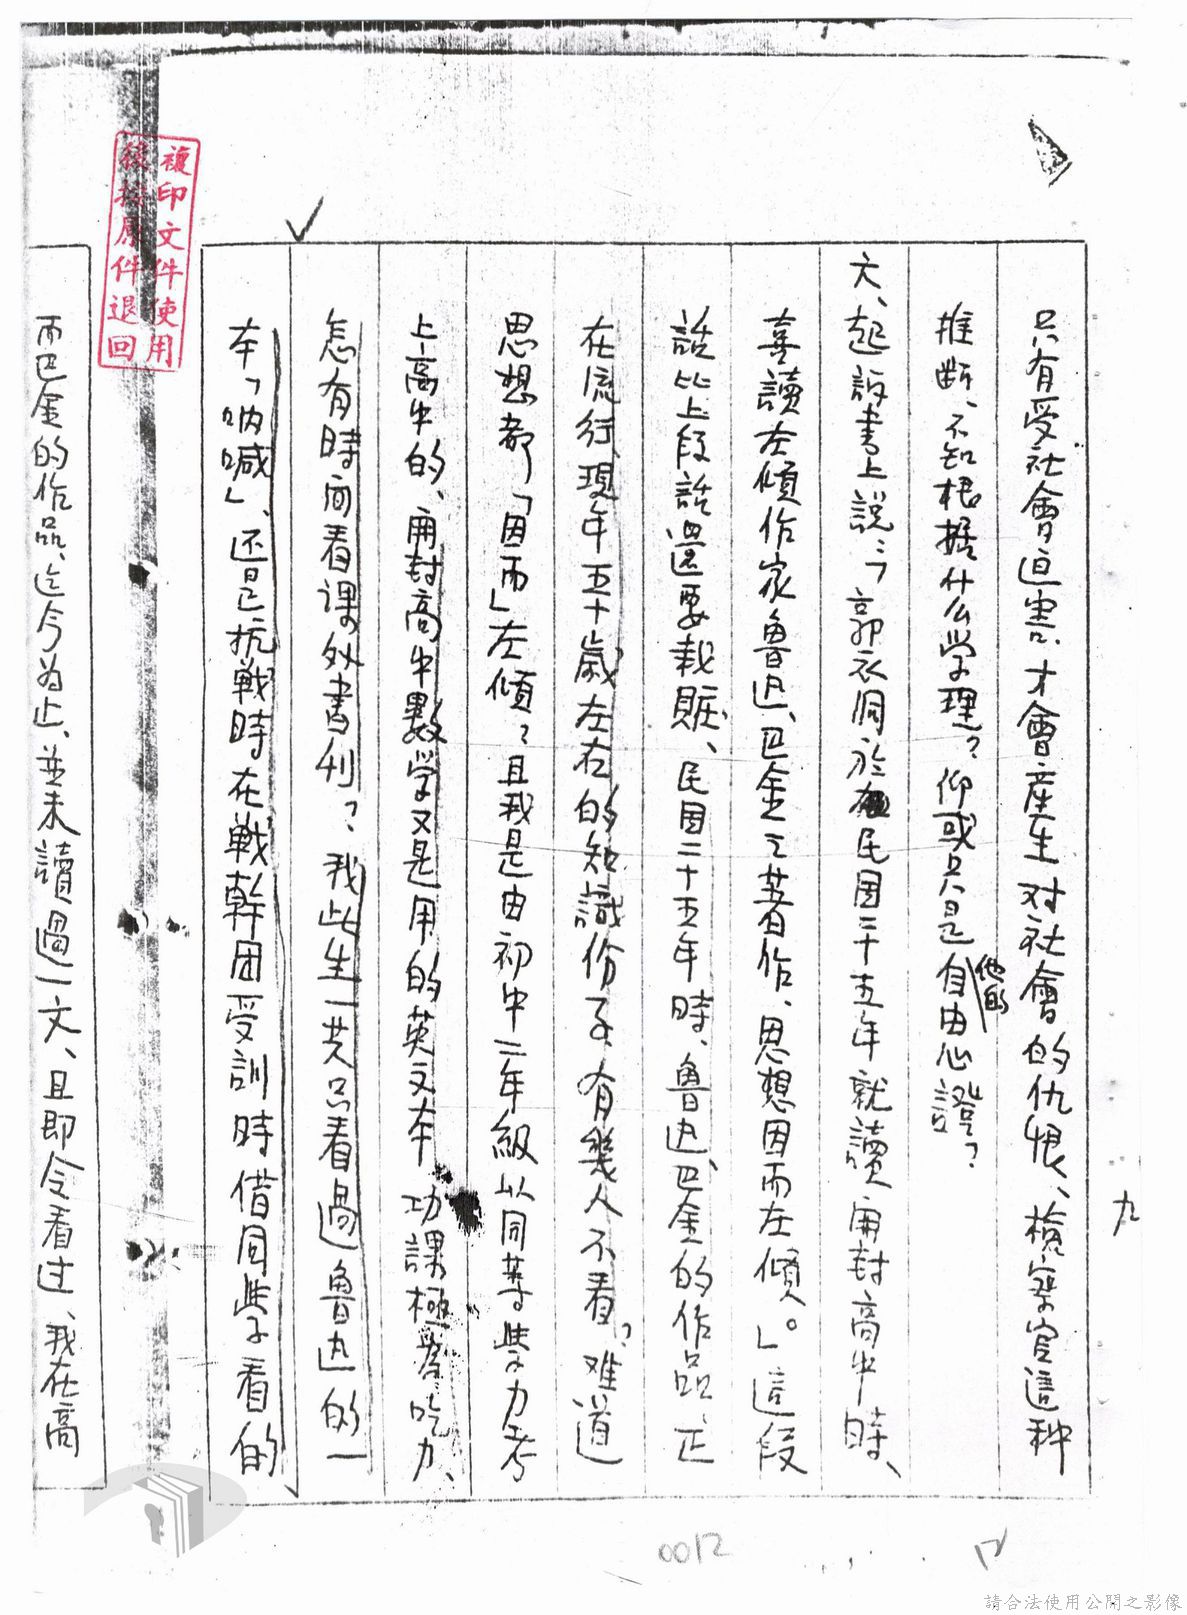 九
只有受社會迫害、才會產生对社會的仇恨、檢察官這种
推斷、不知根据什么学理？仰或只是他的自由心證？
六、起訴書上說：「郭衣洞於民国二十五年就讀開封高中時、
喜讀左傾作家魯迅、巴金之著作、思想因而左傾。」這段
話比上段話還要栽賍、民国二十五年時、魯迅、巴金的作品正
在流行、現年五十歲左右的知識份子、有幾人不看？难道
思想都「因而」左傾？且我是由初中二年級以同等學力考
上高中的、開封高中數学又是用的英文本、功課極為吃力、
怎有時间看課外書刊？我此生一共只看過魯迅的一
本「吶喊」、还是抗戰時在戰幹团受訓時借同學看的
而巴金的作品、迄今为止、並未讀過一文、且即令看过、我在高
複印文件使用
後按原件退回
0012
請合法使用公開之影像